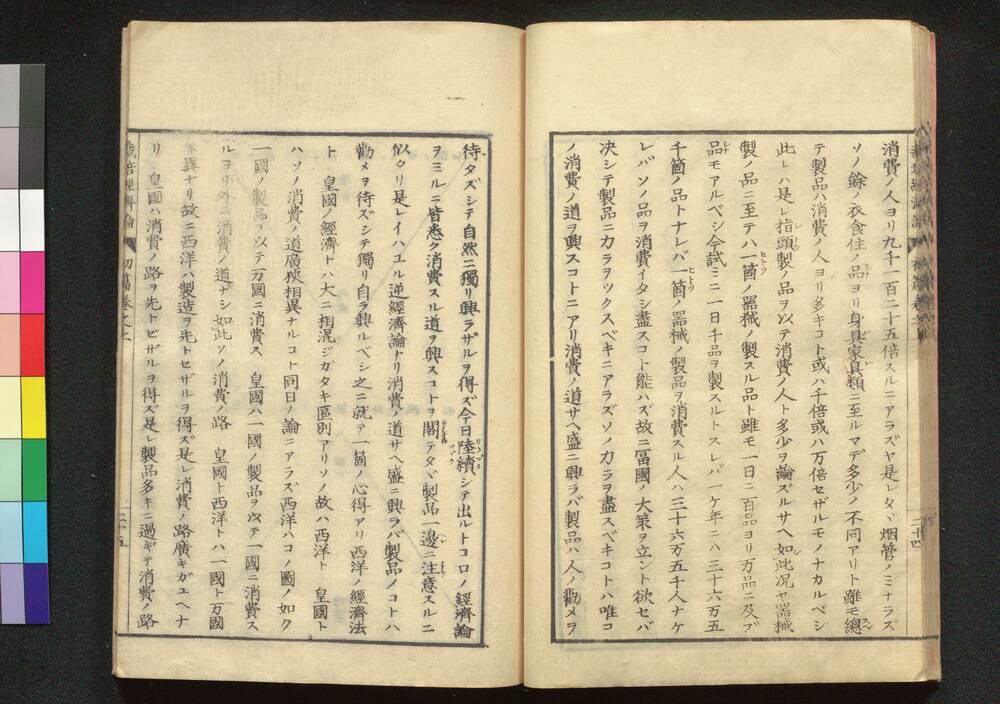 消費ノ人ヨリ九千一百二十五倍スルニアラズヤ是レタヾ烟管ノミナラズ
ソノ餘ノ衣食住ノ品ヨリ身具家具類ニ至ルマデ多少ノ不同アリト雖モ總
テ製品ハ消費ノ人ヨリ多キコト或ハ千倍或ハ万倍セザルモノナカルベシ
此レハ是レ指頭製ノ品ヲ以テ消費ノ人ト多少ヲ論ズルサヘ如此况ヤ器械
製ノ品ニ至テハ一箇ノ器械ノ製スル品ト雖モ一日ニ百品ヨリ万品ニ及ブ
品モアルベシ今試ミニ一日千品ヲ製スルトスレバ一ケ年ニハ三十六万五
千箇ノ品トナレバ一箇ノ器械ノ製品ヲ消費スル人ハ三十六万五千人ナケ
レバソノ品ヲ消費イタシ盡スコト能ハズ故ニ冨國ノ大策ヲ立ント欲セバ
决シテ製品ニカラヲツクスベキニアラズソノ力ラヲ盡スベキコトハ唯コ
ノ消費ノ道ヲ興スコトニアリ消費ノ道サヘ盛ニ興ラバ製品ハ人ノ勸メヲ
二十四
待タズシテ自然ニ獨リ興ラザルヲ得ズ今日陸續ノシテ出ルトコロノ經濟論
ヲミルニ皆悉ク消費スル道ヲ興スコトヲ閣テタヾ製品一邊ニ注意スルニ
似タリ是レイハユル逆經濟論ナリ消費ノ道サヘ盛ニ興ラバ製品ノコトハ
勸メヲ待ズシテ獨リ自ラ興ルベシ之ニ就テ一箇ノ心得アリ西洋ノ經濟法
ト 皇國ノ經濟トハ大ニ相混ジガタキ區別アリソノ故ハ西洋ト 皇國ト
ハソノ消費ノ道廣狹相異ナルコト同日ノ論ニアラズ西洋ハコノ圖ノ如ク
一國ノ製品ヲ以テ万國ニ消費ス 皇國ハ一國ノ製品ヲ以テ一國ニ消費ス
ルヨリ外ニ消費ノ道ナシ如此ソノ消費ノ路 皇國ト西洋トハ一國ト万國
ト異ナリ故ニ西洋ハ製造ヲ先トセザルヲ得ズ是レ消費ノ路廣キガユヘナ
リ 皇國ハ消費ノ路ヲ先トセザルヲ得ズ是レ製品多キニ過ギテ消費ノ路
栽培經濟論 初篇卷之上 二十五